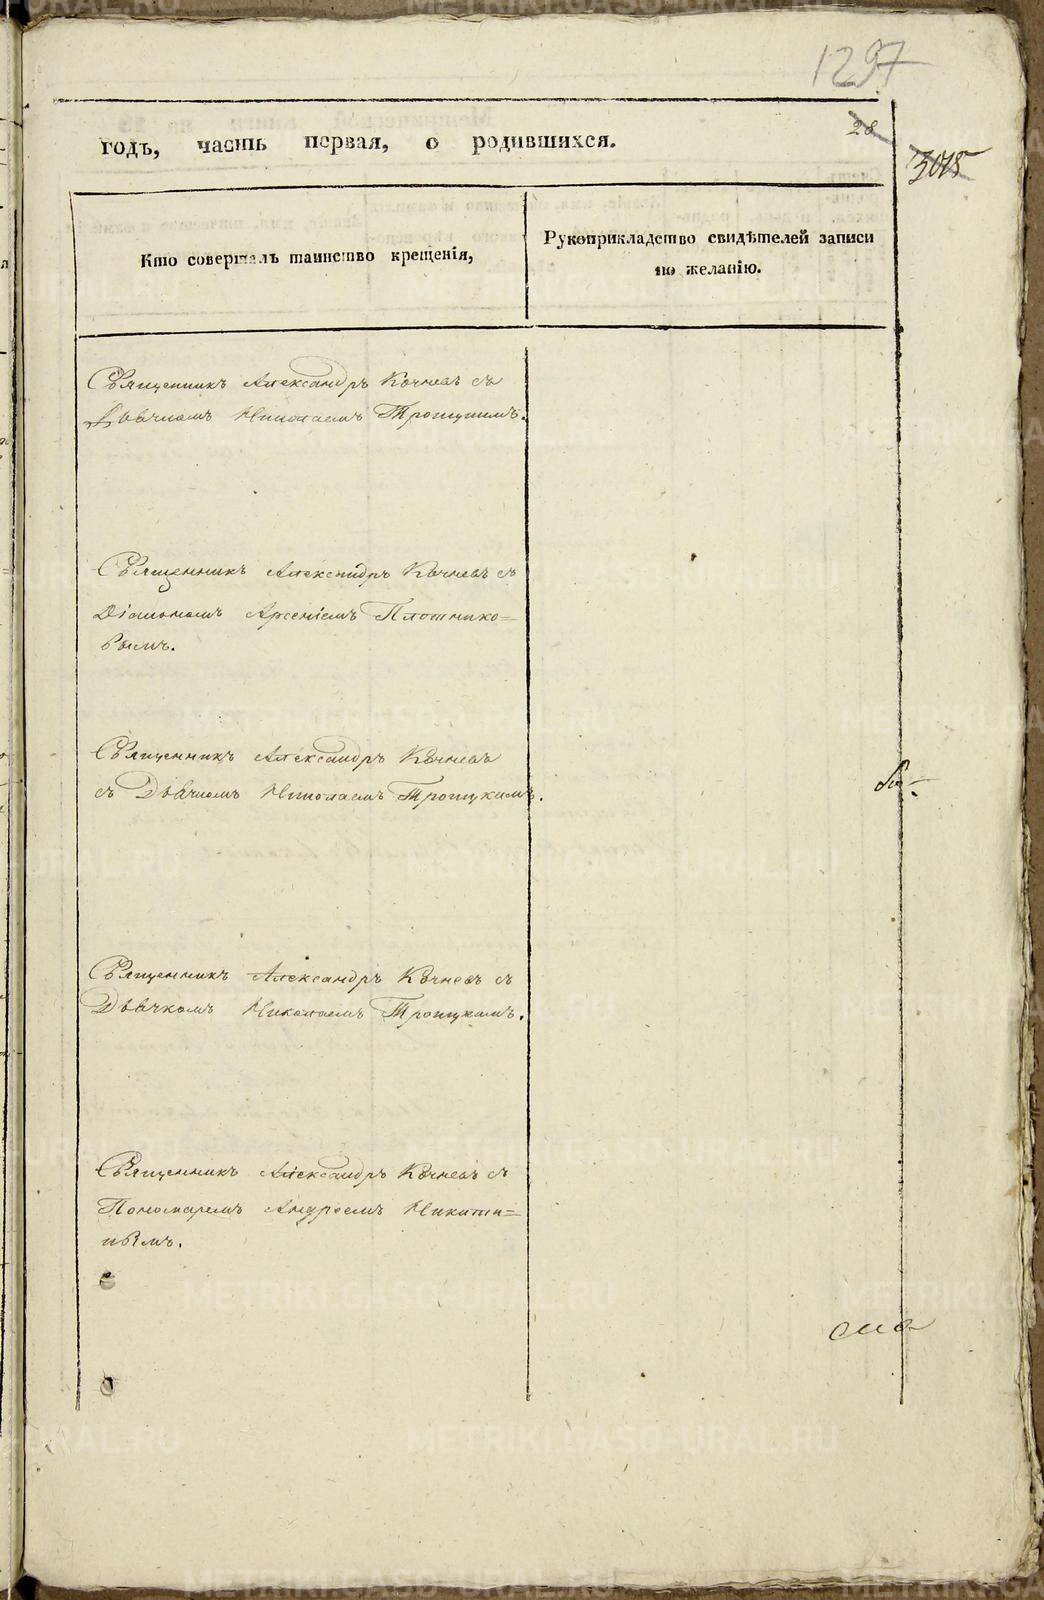 1297
28
3015
годъ, часть первая, о родившихся.
Кто совершалъ таинство крещенія,
Рукоприкладство свидѣтелей записи
по желанію.
Священникъ Александръ Кочневъ съ
Дьячкомъ Николаемъ Троицкимъ.
Священникъ Александръ Кочневъ съ
Діакономъ Арсеніемъ Плотнико=
вымъ.
Священникъ Александръ Кочневъ
съ Дьячкомъ Николаемъ Троицкимъ.
Священникъ Александръ Кочневъ съ
Дьячкомъ Николаемъ Троицкимъ.
Священникъ Александръ Кочневъ съ
Пономаремъ Андреемъ Никити=
нымъ.
METRIKI.GASO-URAL.RU